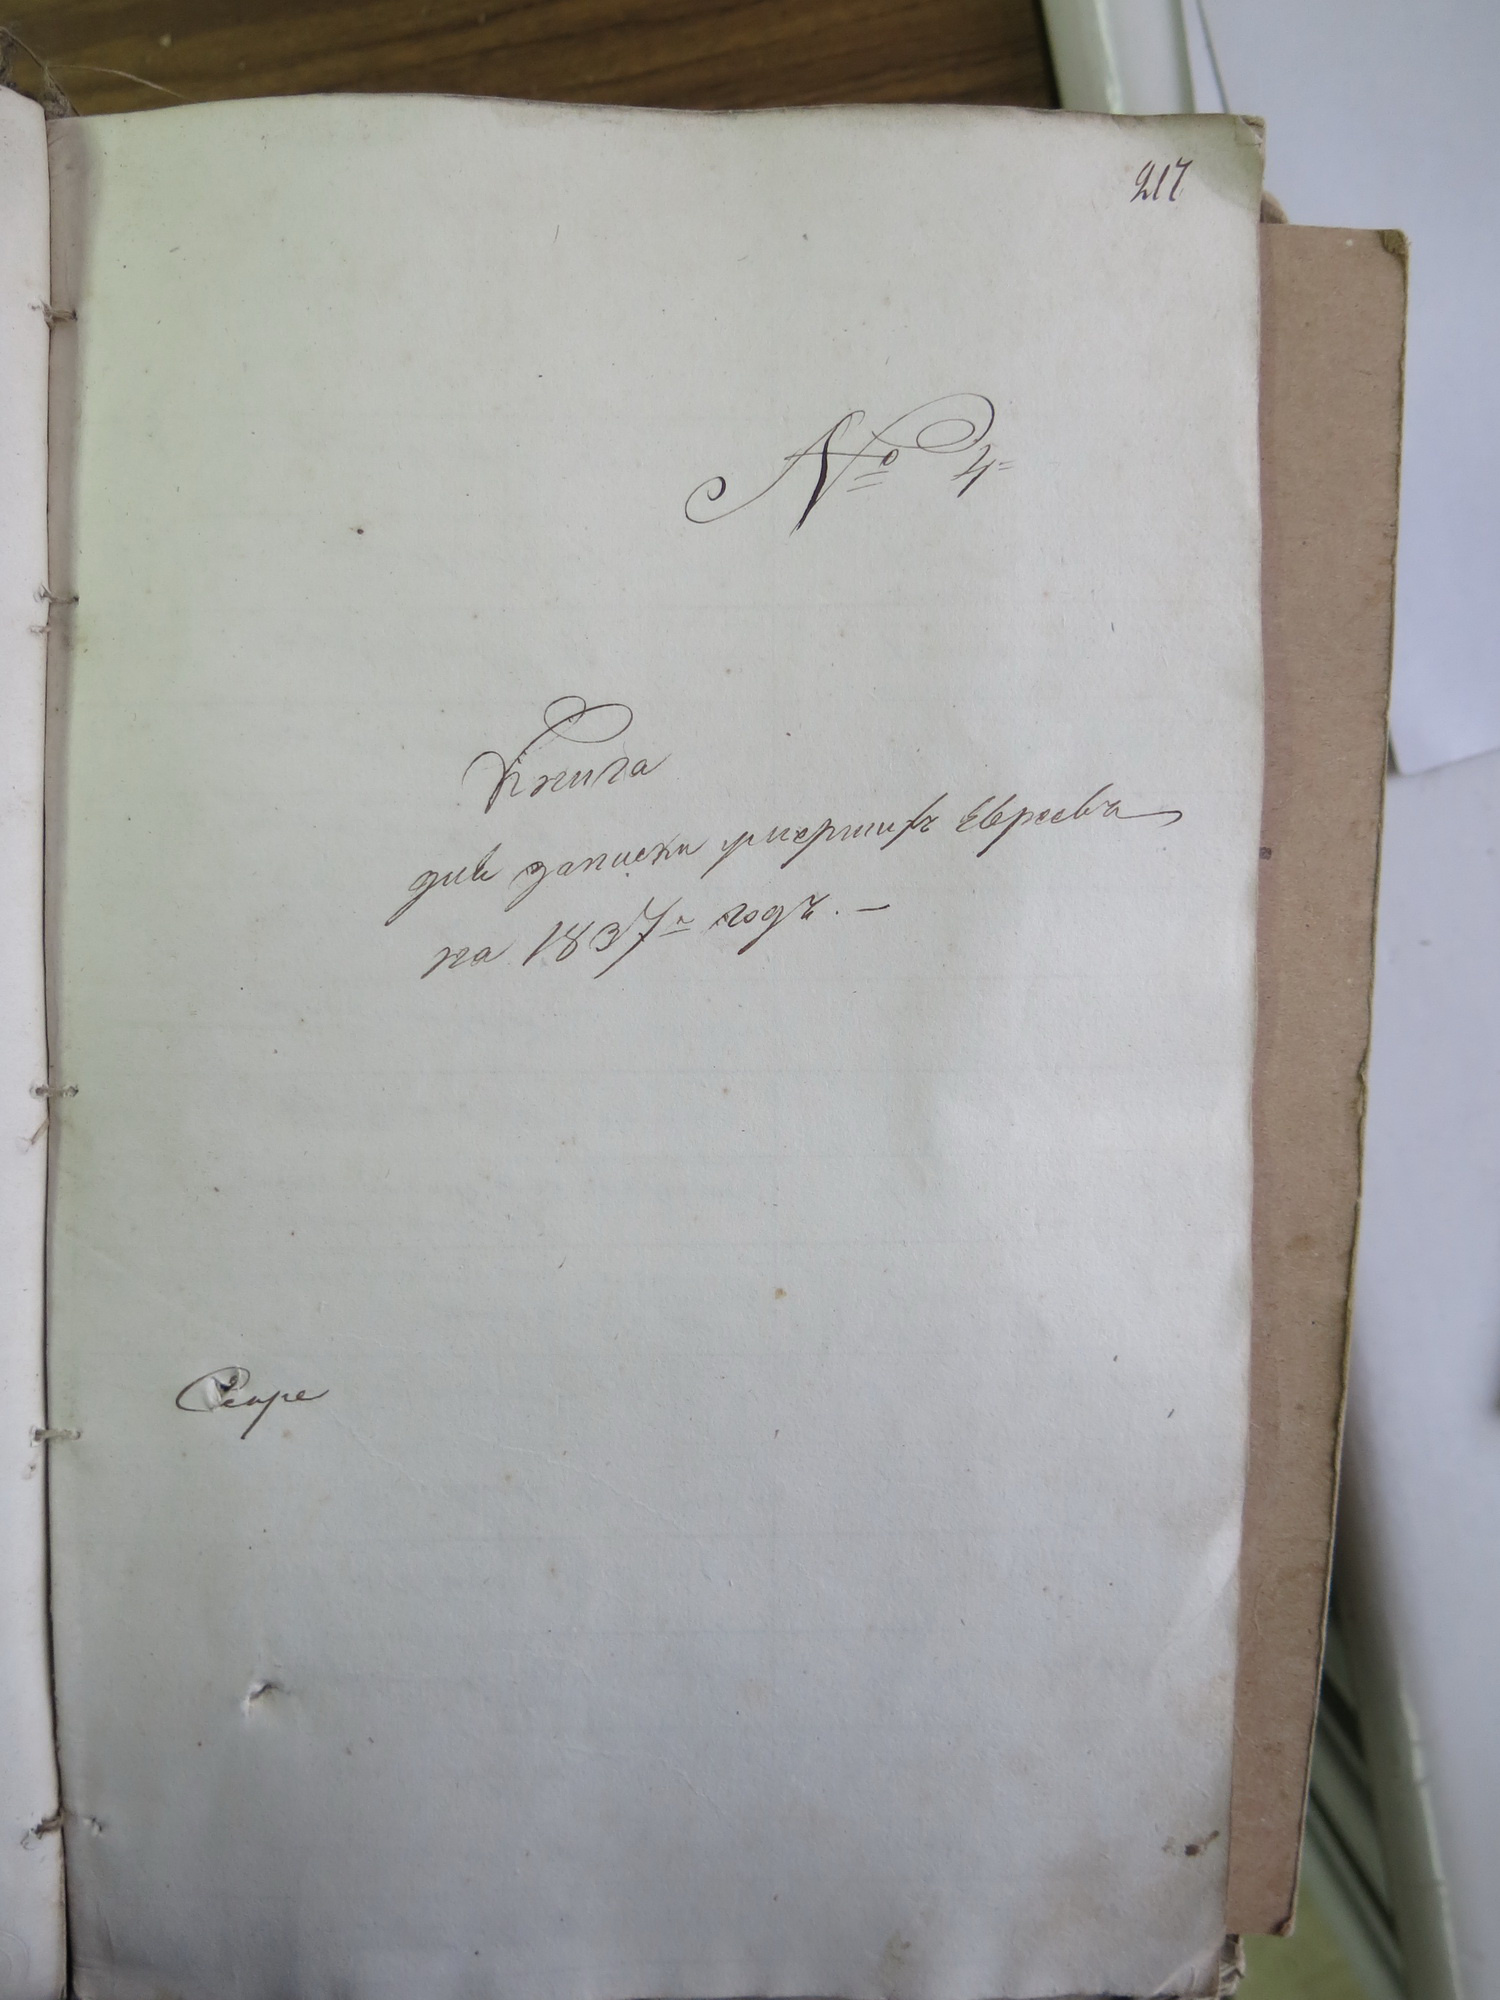 217
№ 4
Книга
для записки умершихъ Евреевъ
на 1837й годъ. —